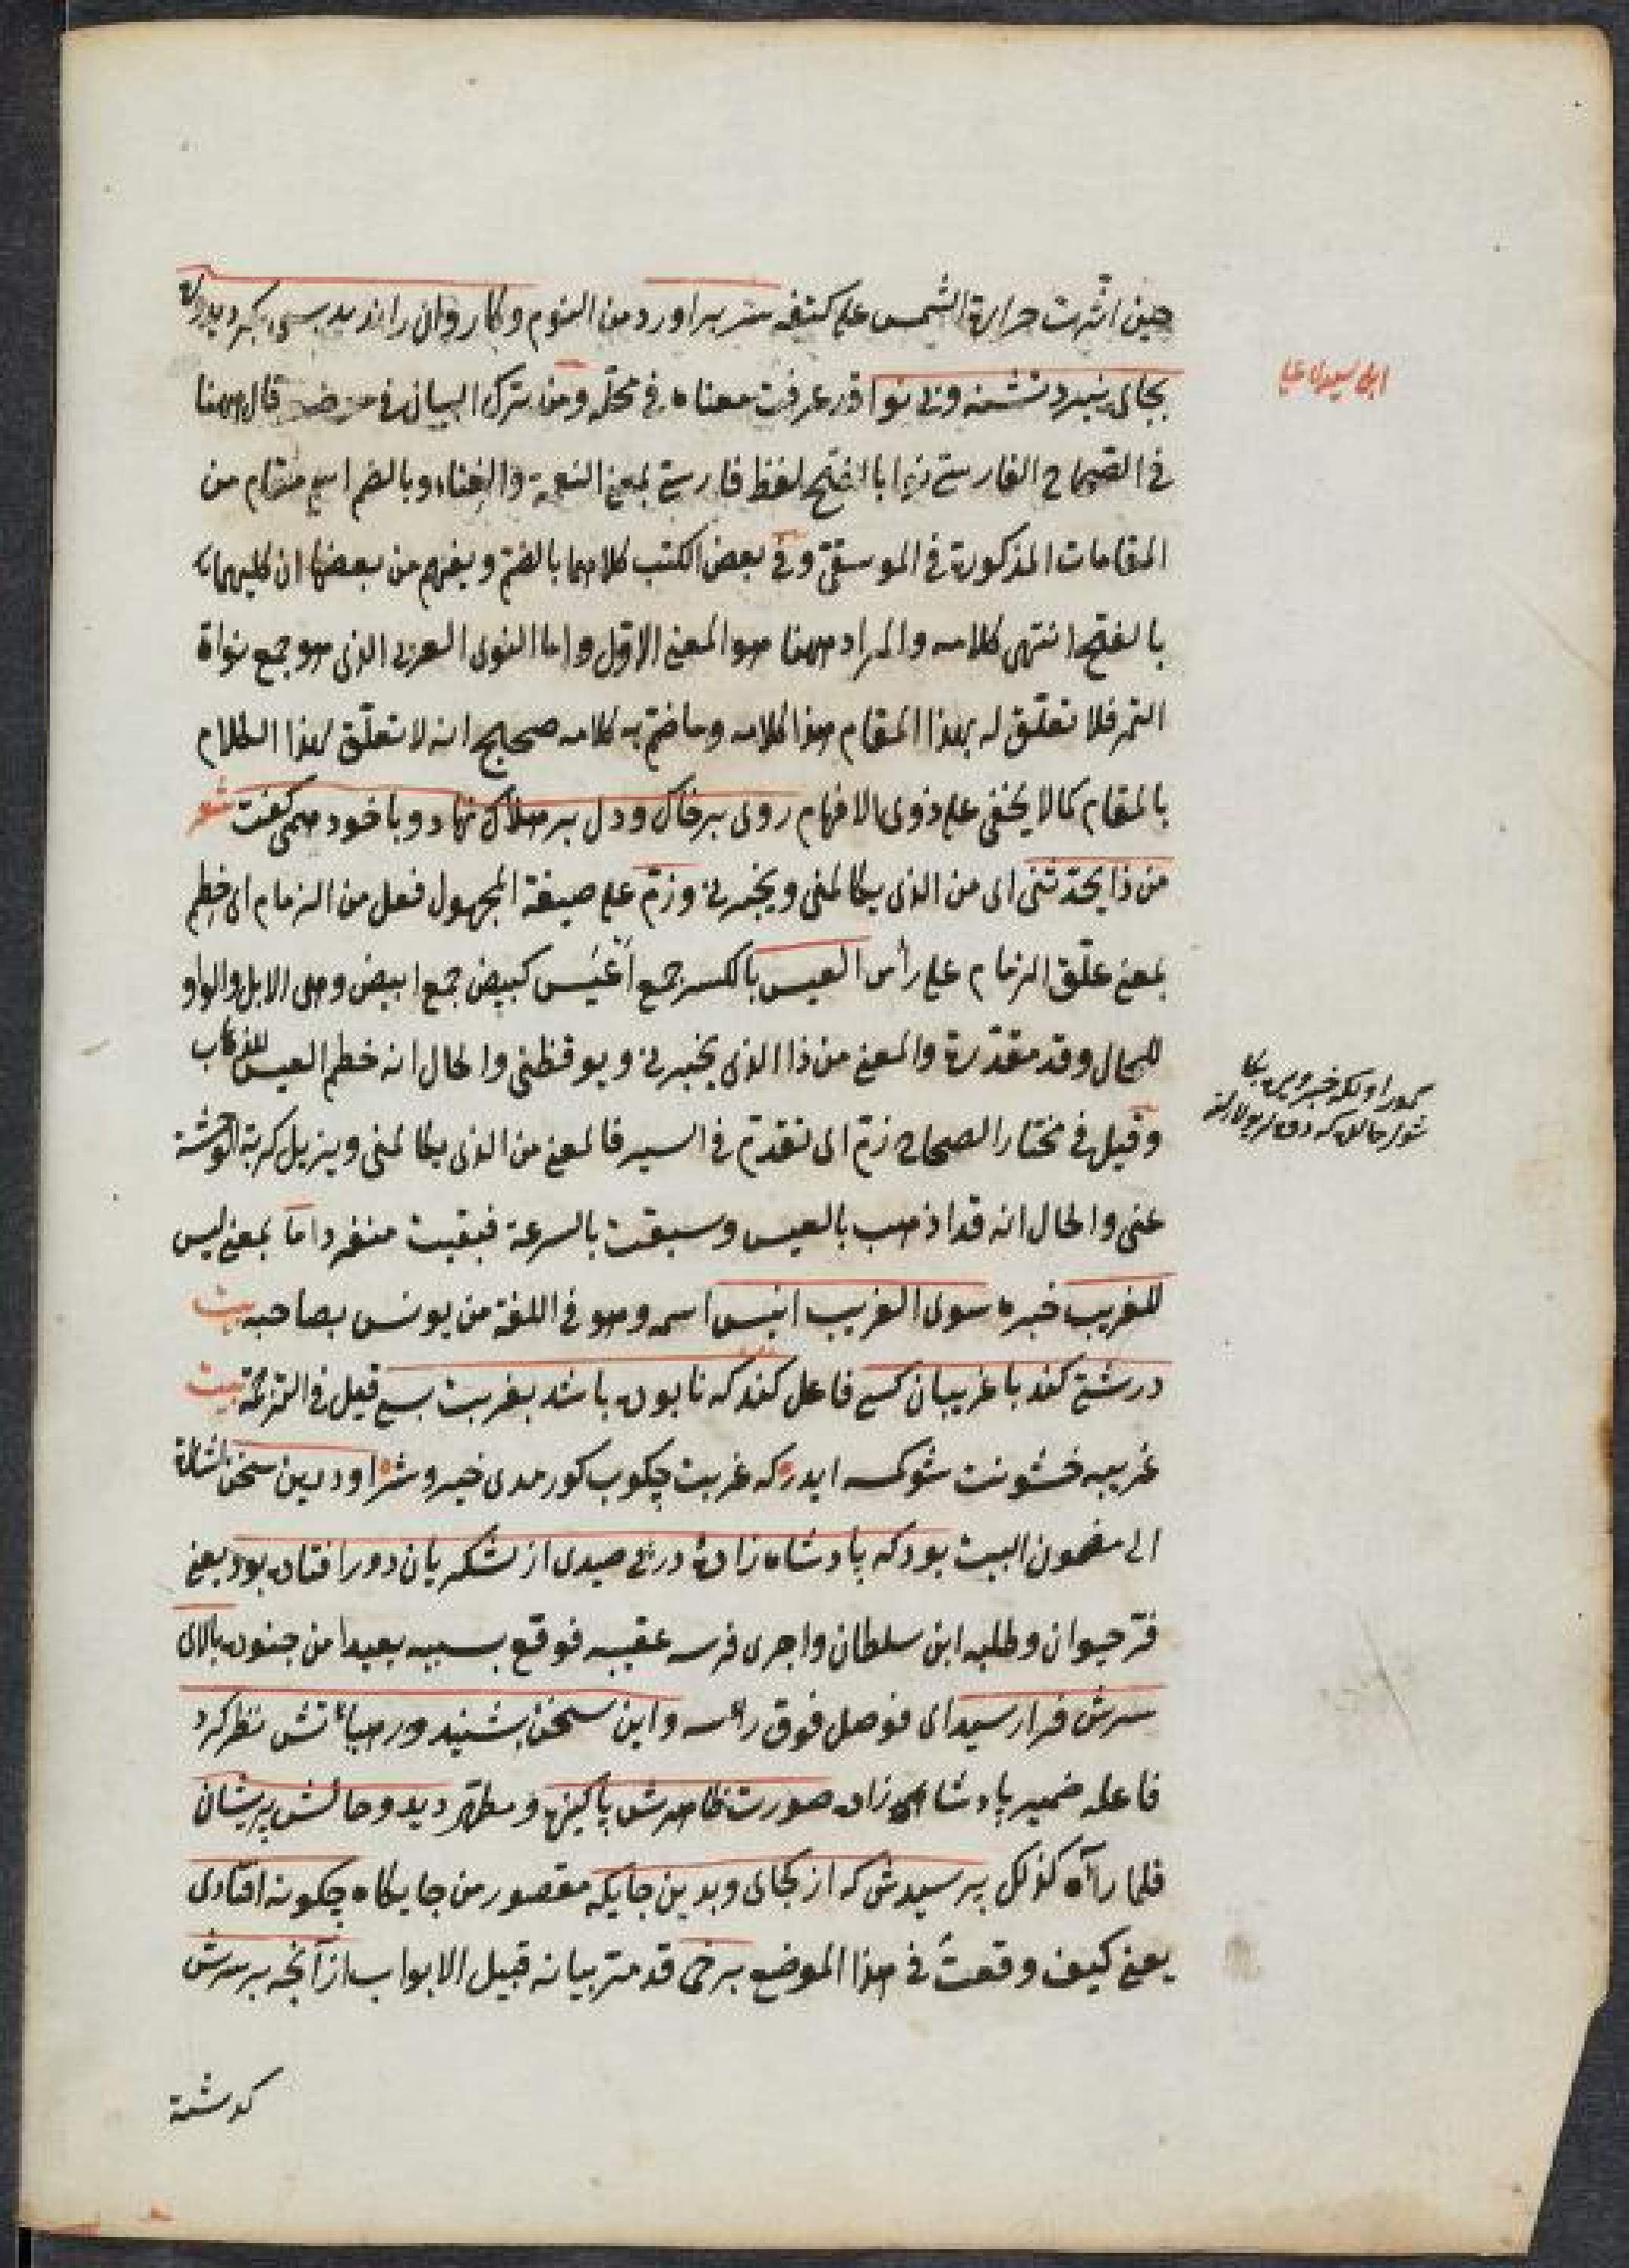 حين اثرت حرارة الشمس على كتفه سر براورد من النوم وكاروان را نديد بسى بكرديد وراه
بجايى نبرد تشنه وبى نوا قد عرفت معناه فى محلّه ومن ترك البيان فى موضعه قال ههنا
فى الصحاح الفارسى نوا بالفتح لفظ فارسى بمعنى النعمة والغناء وبالضم اسم مقام من
المقامات المذكورة فى الموسقى وفى بعض الكتب كلاهما بالضم ويفهم من بعضها ان كليهما
بالفتح انتهى كلامه والمراد ههنا هو المعنى الاول واما النوى العربى الذى هو جمع نواة
التمر فلا تعلّق له بهذا المقام هذا كلامه وما ختم به كلامه صحيح انه لا تعلّق لهذا الكلام
بالمقام كما لا يخفى على ذوى الافهام روى بر خاك ودل بر هلاك نهاد وبا خود همى كفت شعر
من ذا يحدّثنى اى من الذى يكالمنى ويخبرنى وزمّ على صيغة المجهول فعل من الزمام اى خطم
بمعنى علّق الزمام على رأس العيس بالكسر جمع أعيس كبيض جمع ابيض وهى الابل والواو
للحال وقد مقدّرة والمعنى من ذا الذى يخبرنى ويوقظنى والحال انه خطم العيس للذهاب
وقيل فى مختار الصحاح زمّ اى تقدّم فى السير فالمعنى من الذى يكالمنى ويزيل كربة الوحشة
عنى والحال انه قد اذهب بالعيس وسبقت بالسرعة فبقيت منفردا ما بمعنى ليس
للغريب خبره سوى الغريب انيس اسمه وهو فى اللغة من يونس بصاحبه بيت
درشتى كند با غريبان كسى فاعل كند كه نابوده باشد بغربت بسى قيل فى الترجمة بيت
غريبه خشونت شو كسه ايدر كه غربت چكوب كورمدى خير وشر او درين سخن اشارة
الى مضمون البيت بود كه پادشاه زادۀ در پى صيدى از لشكريان دور افتاده بود يعنى
فرّ حيوان وطلبه ابن سلطان واجرى فرسه عقيبه فوقع بسببه بعيدا من جنوده بالاى
سرش فرا رسيد اى فوصل فوق رأسه واين سخن بشنيد ودر هيأتش نظر كرد
فاعله ضمير پادشاه زاده صورت ظاهرش پاكيزه ومطهّر ديد وحالش پريشان
فلما رآه كذلك پرسيدش كه از كجايى وبدين جايكه مقصور من جايكاه چكونه افتادى
يعنى كيف وقعت فى هذا الموضع برخى قد مرّ بيانه قبيل الابواب از آنچه بر سرش
كذشته